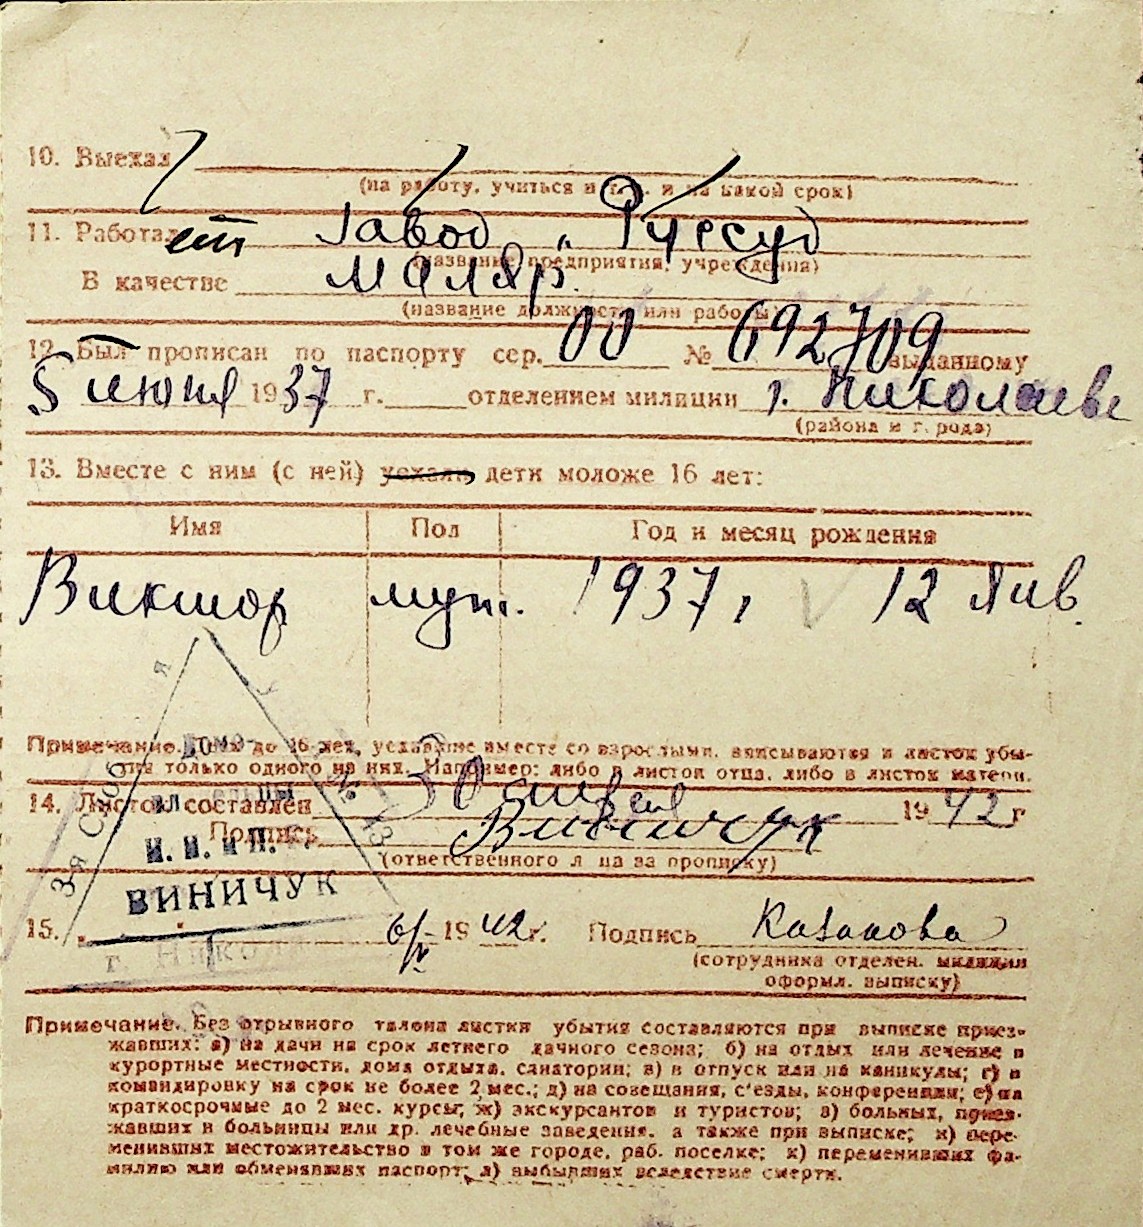 10. Выехал
(на работу, учиться и т. д. и на какой срок)
11. Работал ет Завод „Руссуд
(название предприятия, учреждения)
В качестве маляр.
(название должности или работы)
12. Был прописан по паспорту сер. № 692709 выданному
5 июня 1937 г. отделением милиции г. Николаеве
(района и города)
13. Вместе с ним (с ней) уехали дети моложе 16 лет:
Имя Пол Год и месяц рождения
Виктор муж. 1937 г 12 Янв.
Примечание. Дети до 16 лет, уехавшие вместе со взрослыми, вписываются в листок убы-
тия только одного из них. Например: либо в листок отца, либо в листок матери.
14. Листок составлен 30 апреля 1942 г
Подпись Виничук
(ответственного лица за прописку)
Домо-
вл ельцы
И. И. и П.
ВИНИЧУК
г. Никол
15. 6/V 1942 г. Подпись Казакова
(сотрудника отделен. милиции
оформл. выписку)
Примечание. Без отрывного талона листки убытия составляются при выписке приез-
жавших: а) на дачи на срок летнего дачного сезона; б) на отдых или лечение в
курортные местности, дома отдыха, санатории; в) в отпуск или на каникулы; г) в
командировку на срок не более 2 мес.; д) на совещания, с'езды, конференции; е) на
краткосрочные до 2 мес. курсы; ж) экскурсантов и туристов; з) больных, приез-
жавших в больницы или др. лечебные заведения, а также при выписке; и) пере-
менивших местожительство в том же городе, раб. поселке; к) переменивших фа-
милию или обменявших паспорт; л) выбывших вследствие смерти.